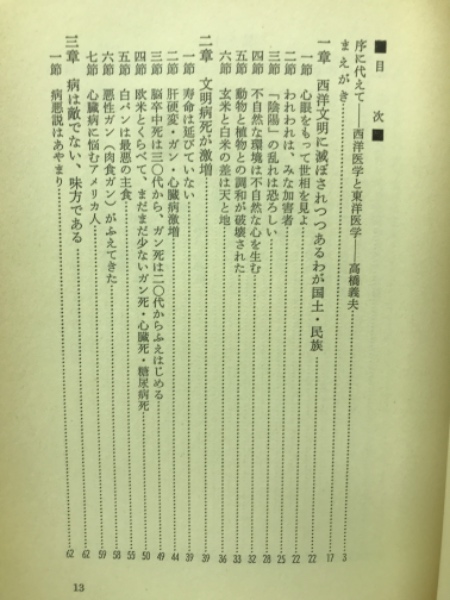 ■目　次■
序に代えて――西洋医学と東洋医学――高橋義夫……3
まえがき……17
一章　西洋文明に滅ぼされつつあるわが国土・民族……22
一節　心眼をもって世相を見よ……22
二節　われわれは、みな加害者……25
三節　「陰陽」の乱れは恐ろしい……28
四節　不自然な環境は不自然な心を生む……32
五節　動物と植物との調和が破壊された……33
六節　玄米と白米の差は天と地……36
二章　文明病死が激増……39
一節　寿命は延びていない……39
二節　肝硬変・ガン・心臓病激増……44
三節　脳卒中死は三〇代から、ガン死は二〇代からふえはじめる……49
四節　欧米とくらべて、まだまだ少ないガン死・心臓死・糖尿病死……50
五節　白パンは最悪の主食……55
六節　悪性ガン（肉食ガン）がふえてきた……58
七節　心臓病に悩むアメリカ人……59
三章　病は敵でない、味方である……62
一節　病悪説はあやまり……62
13